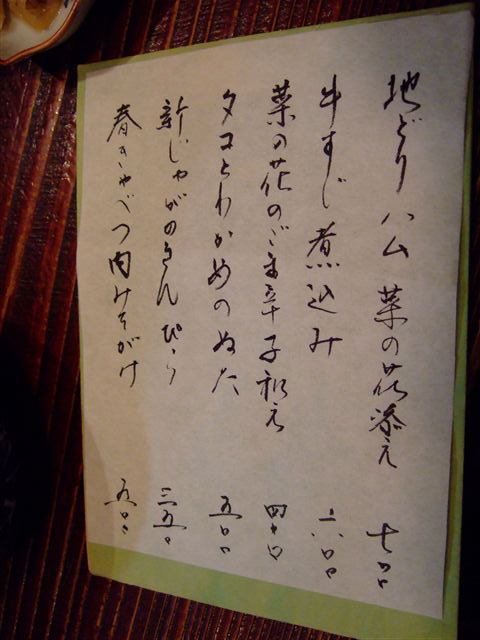 地どりハム 菜の花添え 七〇〇
牛すじ煮込み 六〇〇
菜の花のごま辛子和え 四〇〇
タコとわかめのぬた 五〇〇
新じゃがのきんぴら 三五〇
春きゃべつ肉みそがけ 五〇〇